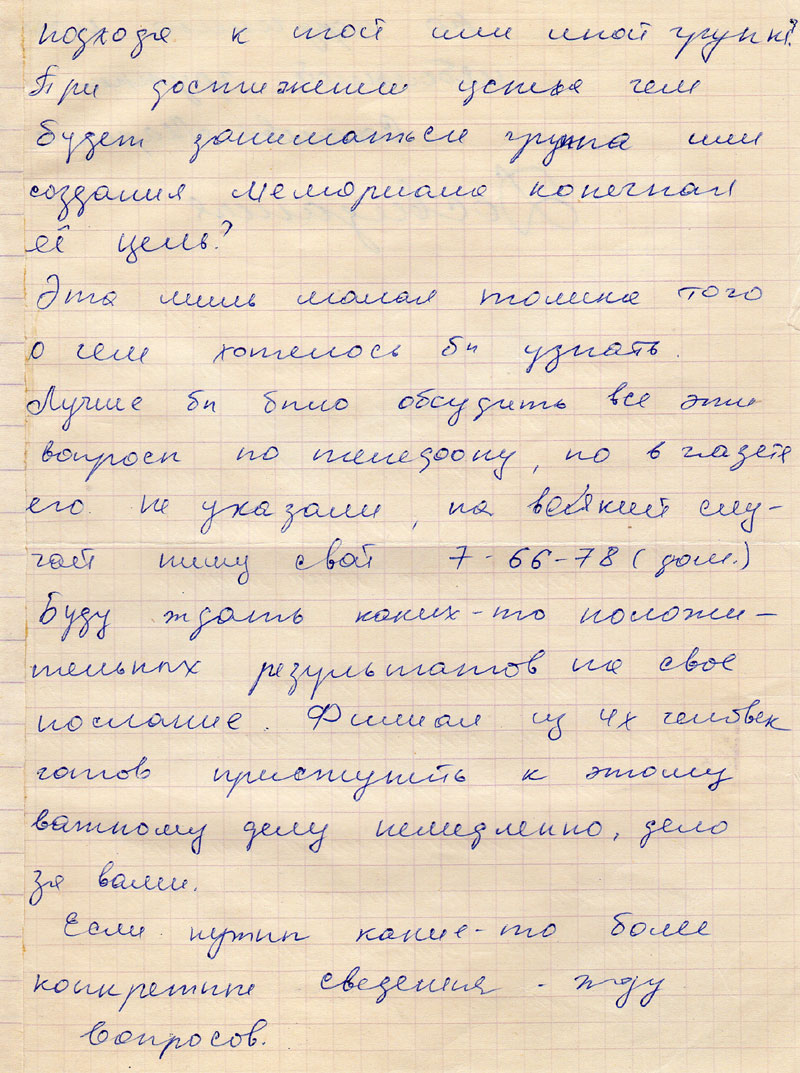 подходя к той или иной группе?
При достижении целья чем
будет заниматься группа или
создания мемориала конечная
её цель?
Эта лишь малая толика того
о чем хотелось бы узнать.
Лучше бы было обсудить все эти
вопросы по телефону, но в газете
его не указали, на всякий слу-
чай пишу свой 7-66-78 (дом.)
Буду ждать каких-то положи-
тельных результатов на свое
послание. Филиал из 4х человек
готов приступить к этому
важному делу немедленно, дело
за вами.
Если нужны какие-то более
конкретные сведения - жду
вопросов.